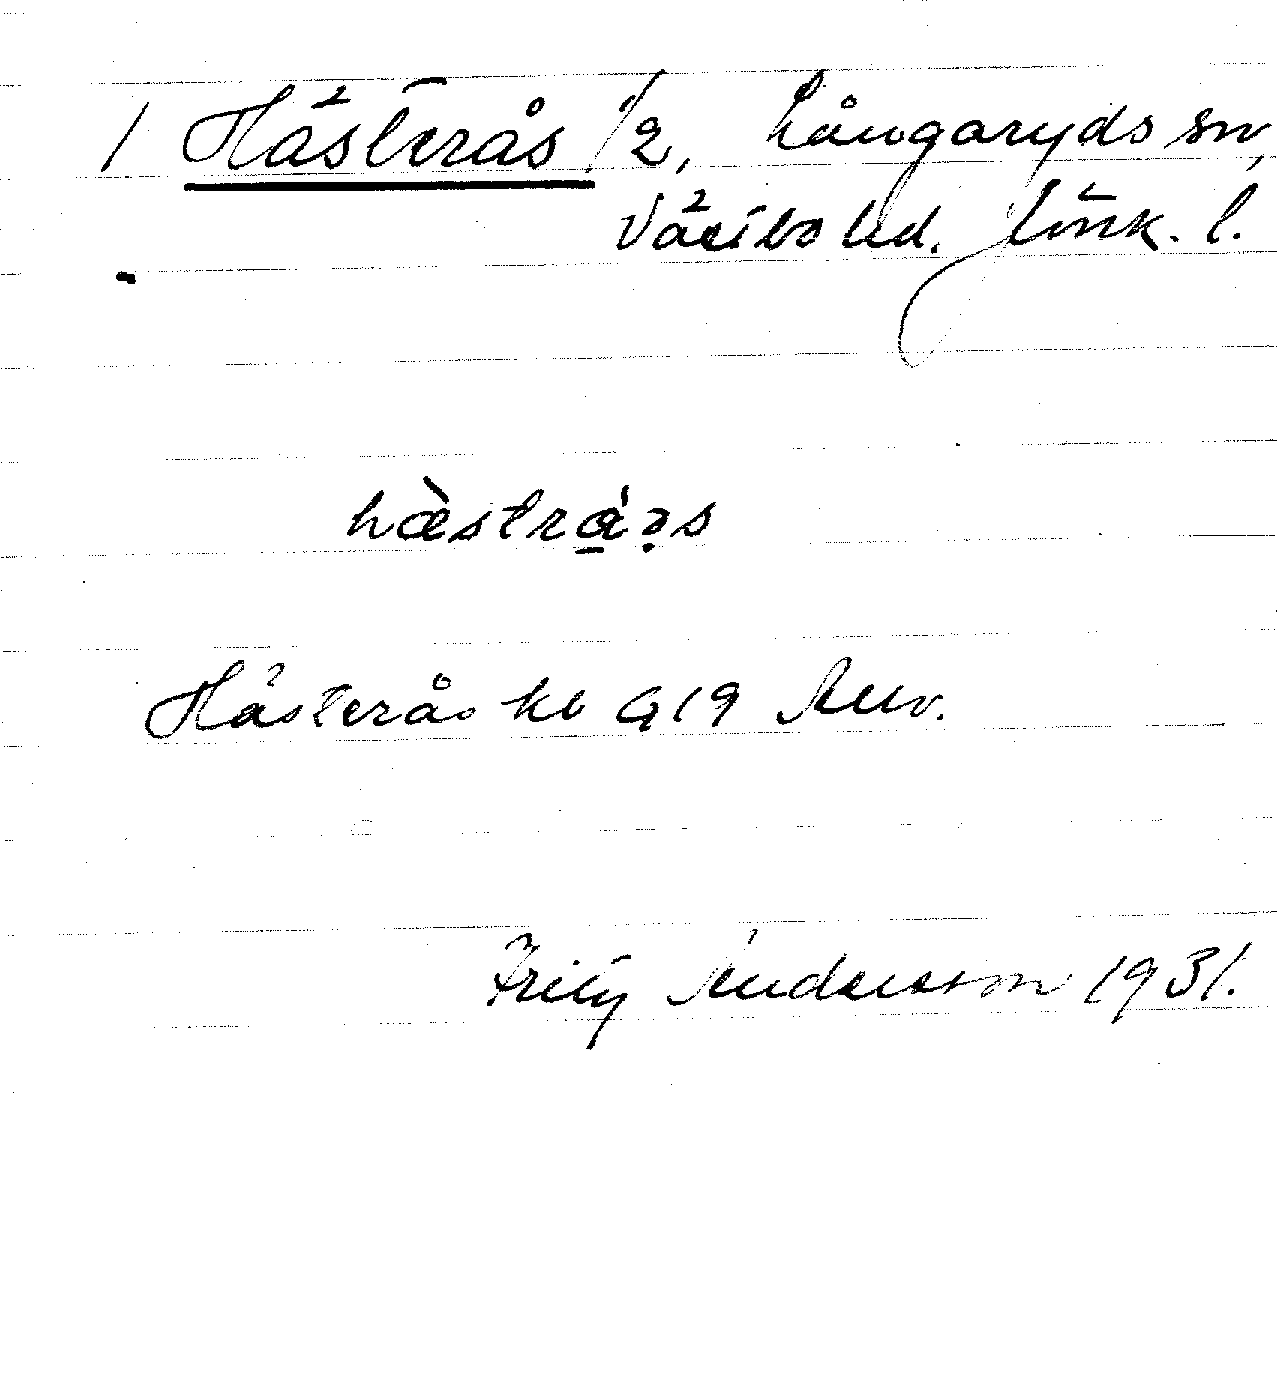 / Hästerås 1/2, Långaryds sn,
Västbo hd. Jönk. l.
hæ̀strá̱ə̣s
Hästerås kb G19 Anv.
Fritz Andersson 1931.